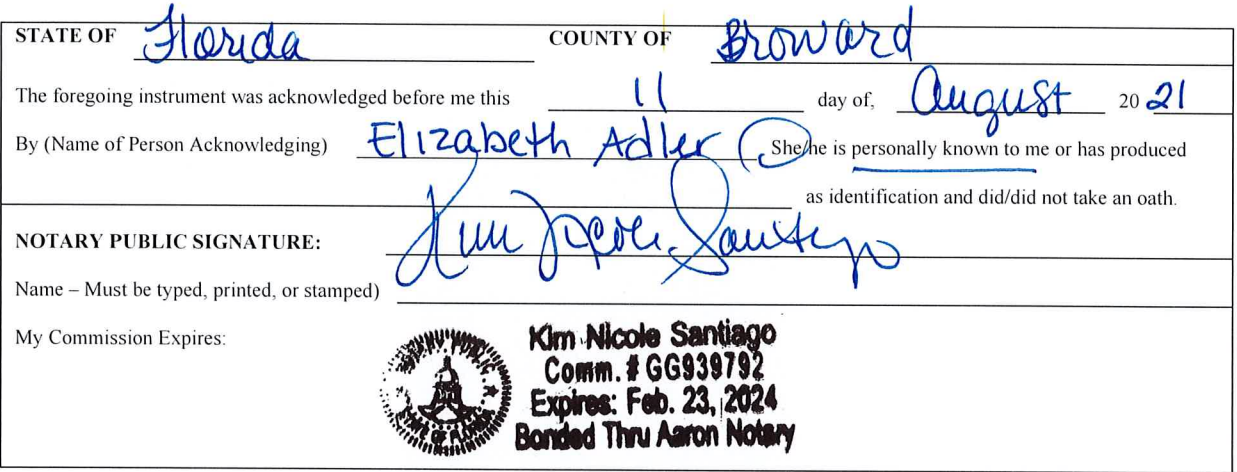 STATE OF Florida COUNTY OF Broward
The foregoing instrument was acknowledged before me this 11 day of, August 20 21
By (Name of Person Acknowledging) Elizabeth Adler She/he is personally known to me or has produced
as identification and did/did not take an oath.
NOTARY PUBLIC SIGNATURE: Kim Nicole Santiago
Name – Must be typed, printed, or stamped)
My Commission Expires:
NOTARY PUBLIC
STATE OF FLORIDA
Kim Nicole Santiago
Comm. # GG939792
Expires: Feb. 23, 2024
Bonded Thru Aaron Notary